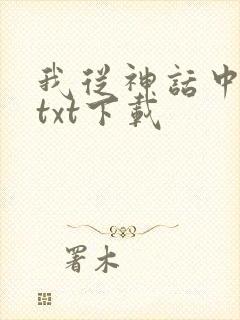 我從神話中
txt下載
署木